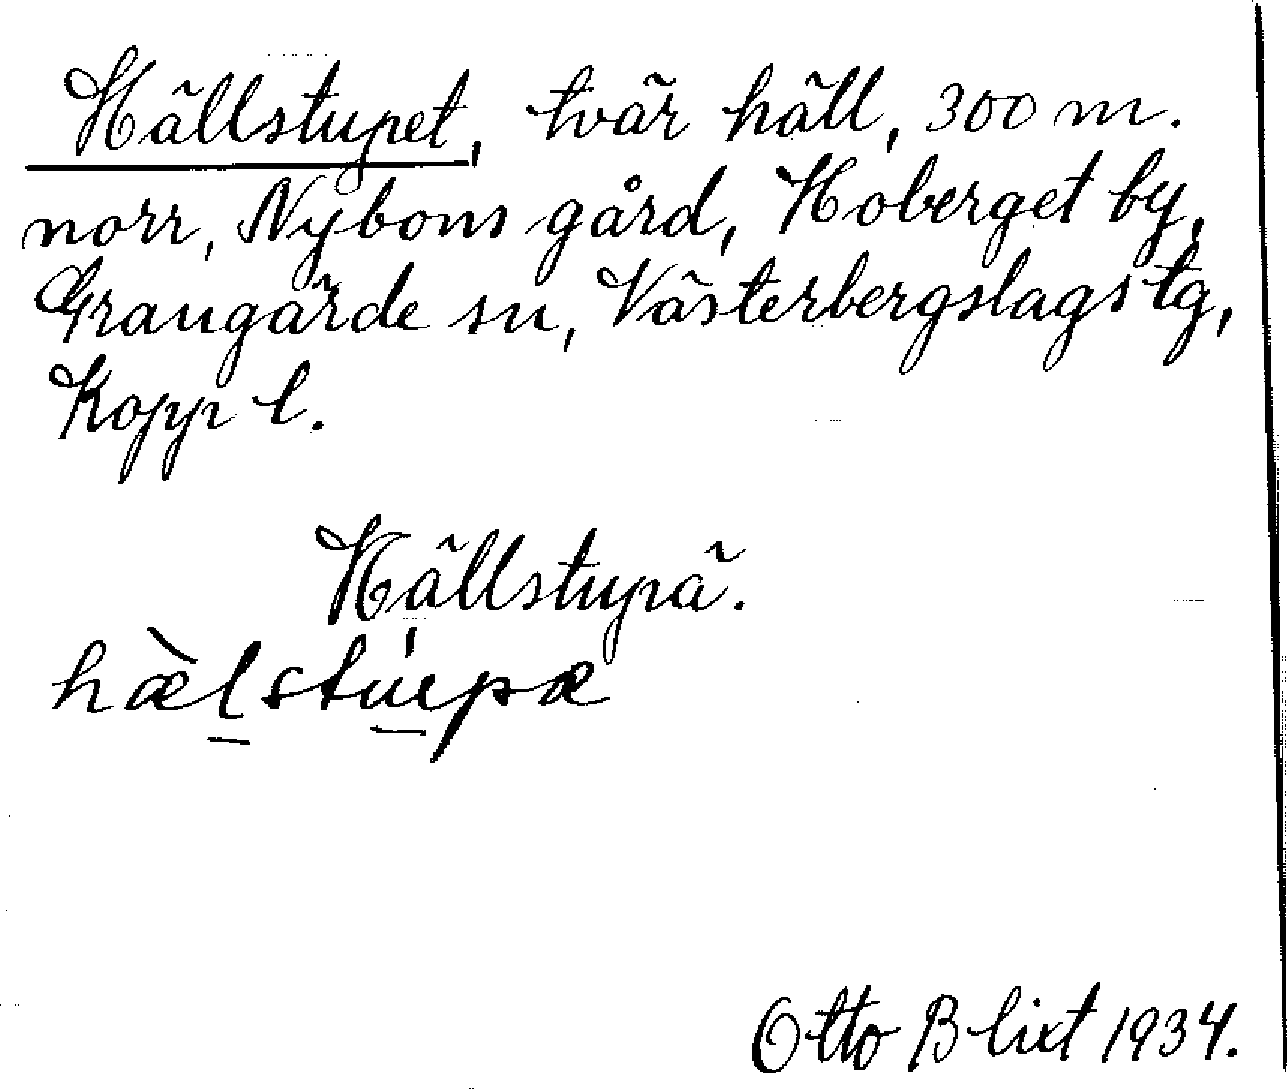 Hällstupet, tvär häll, 300 m.
norr, Nybons gård, Hoberget by,
Grangärde sn, Västerbergslags tg,
Kopp l.
Hällstupä.
hæ̀l̠stu̠̍pæ
Otto Blixt 1934.